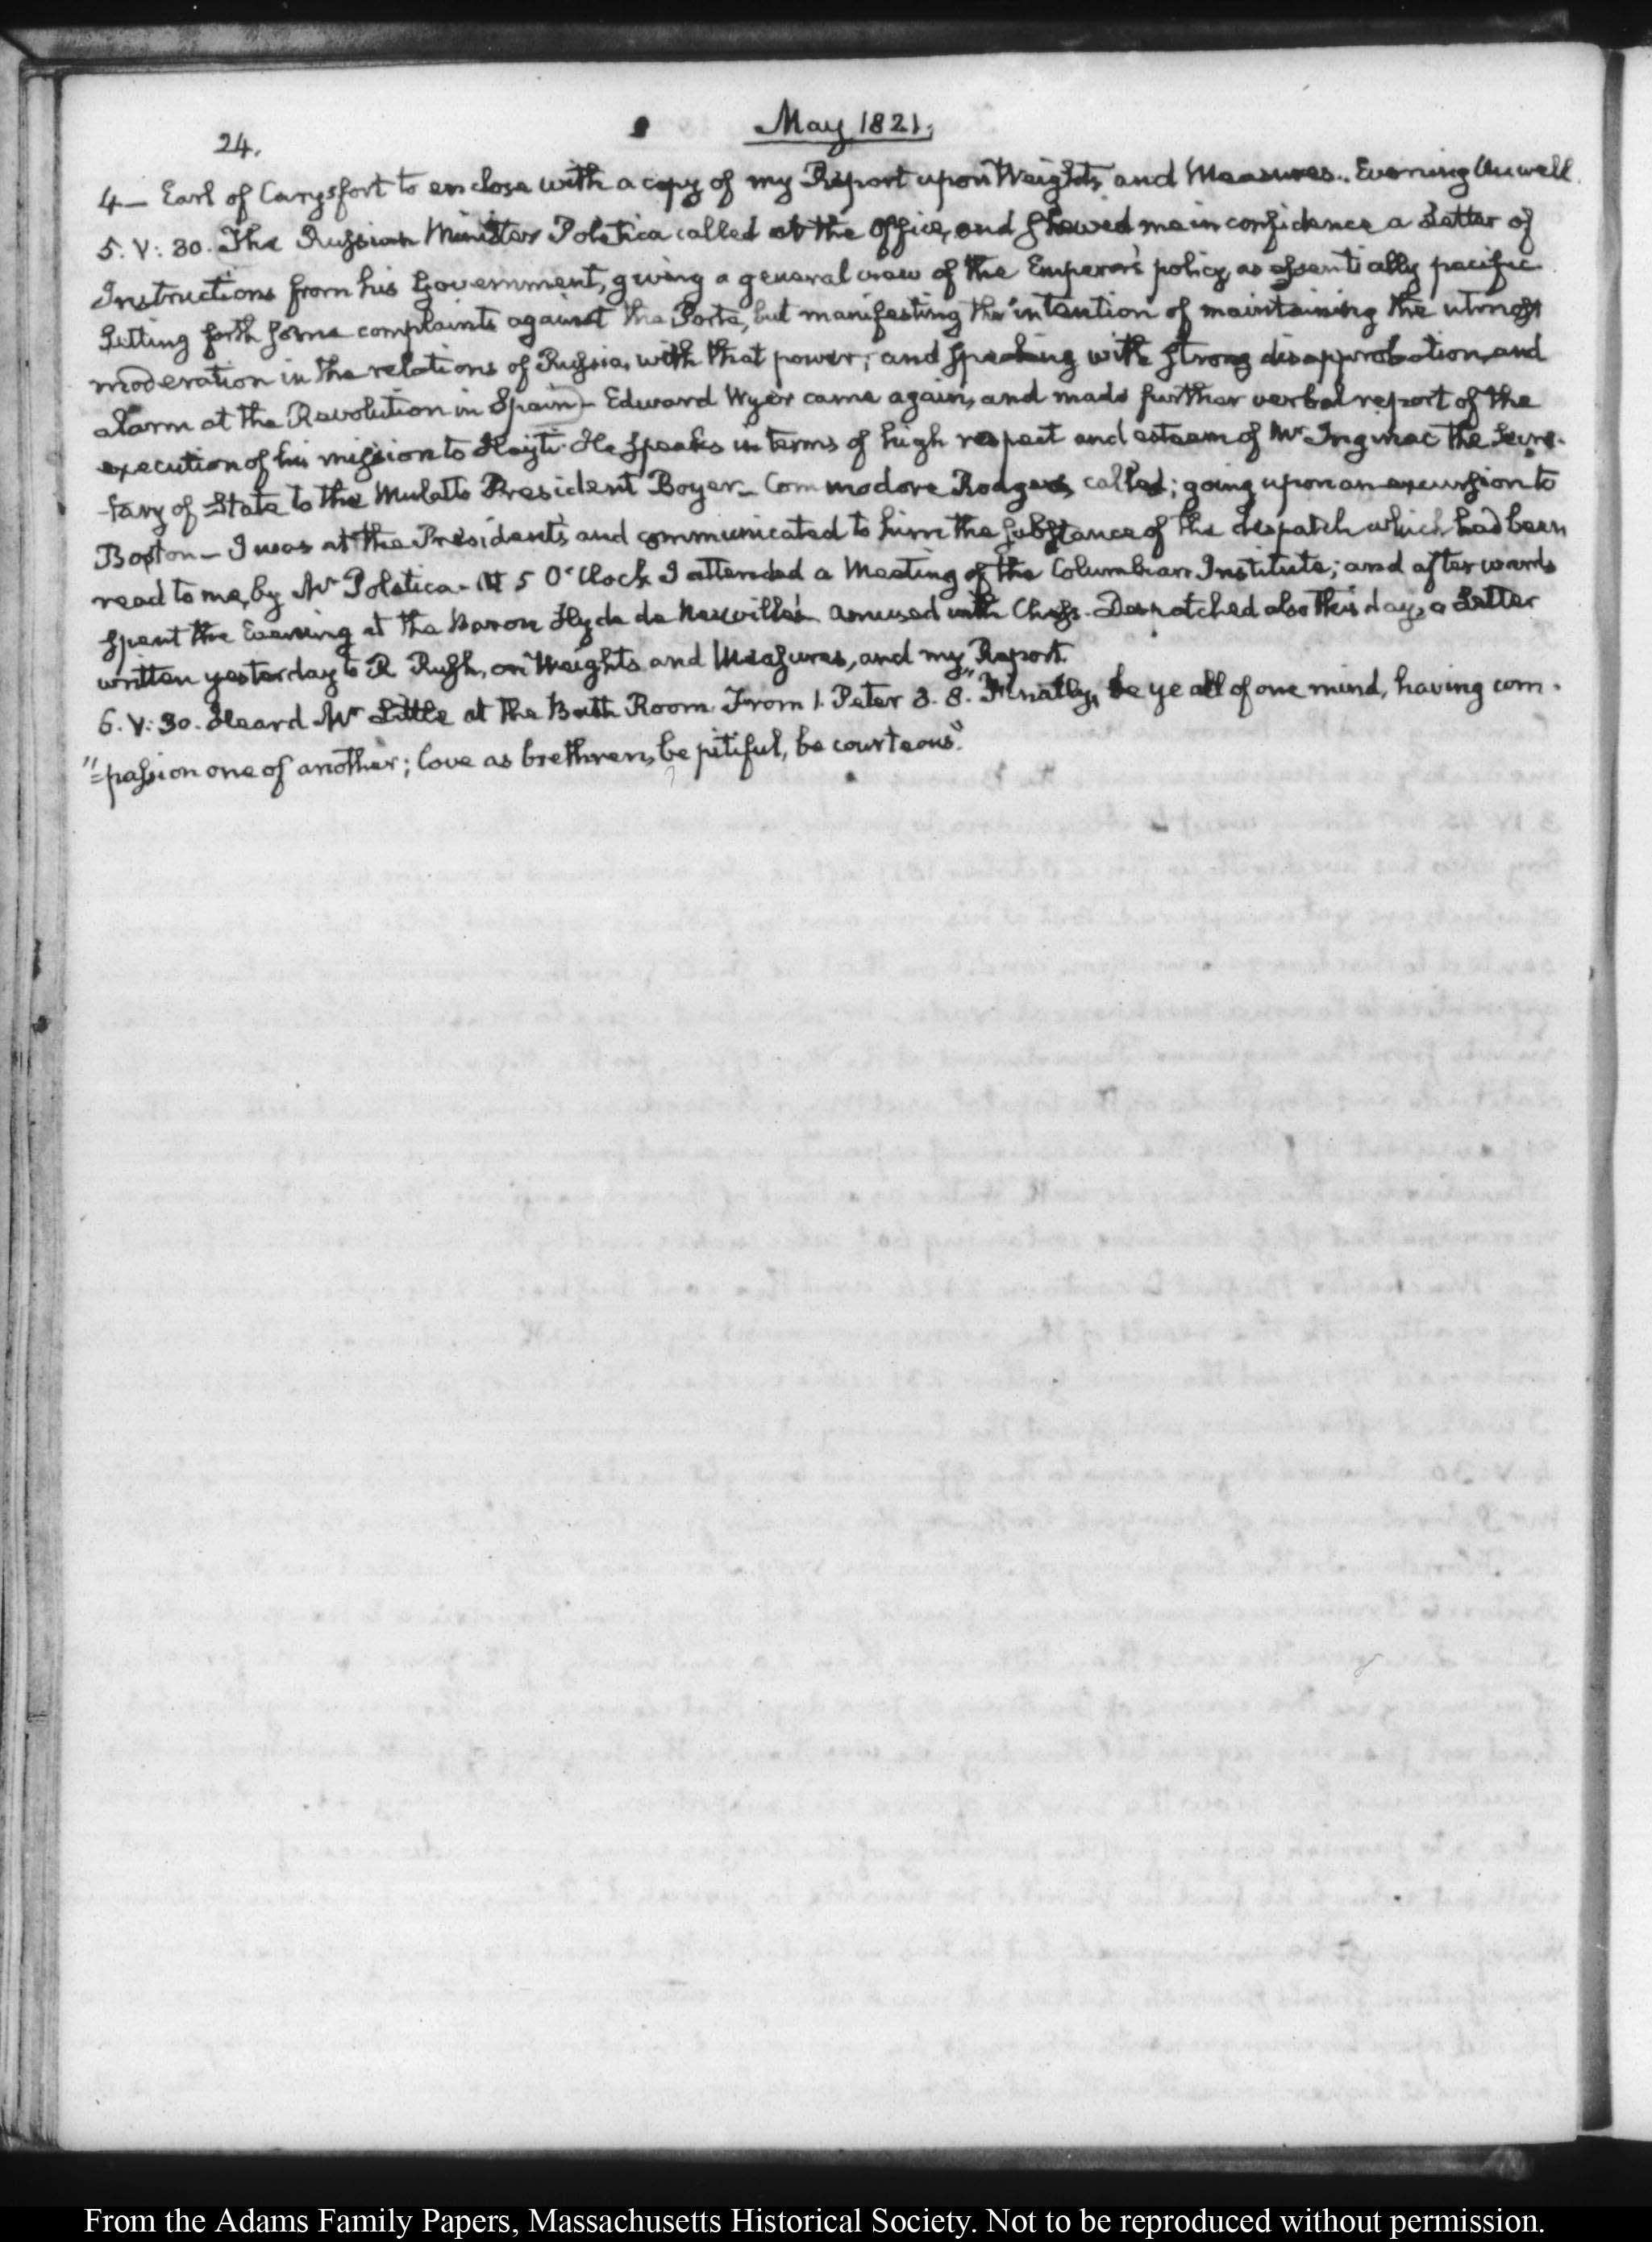 24.
May 1821.
4— Earl of Carysfort to enclose with a copy of my Report upon Weights and Measures. Evening Unwell.
5. V: 30. The Russian Minister Poletica called at the Office, and shewed me in confidence a Letter of
Instructions from his Government, giving a general view of the Emperor's policy, as essentially pacific
setting forth some complaints against the Porte, but manifesting the intention of maintaining the utmost
moderation in the relations of Russia, with that power; and speaking with strong disapprobation, and
alarm at the Revolution in Spain— Edward Wyer came again, and made further verbal report of the
execution of his mission to Hayti. He speaks in terms of high respect and esteem of Mr Inginac the Secre-
tary of State to the Mulatto President Boyer— Commodore Rodgers, called; going upon an excursion to
Boston— I was at the President's, and communicated to him the substance of the despatch which had been
read to me, by Mr Poletica— At 5 O'Clock I attended a Meeting of the Columbian Institute; and afterwards
spent the Evening at the Baron Hyde de Neuville's. Amused with Chess. Despatched also this day, a Letter
written yesterday to R Rush, on Weights and Measures, and my Report.
6. V: 30. Heard Mr Little at the Bath Room. From 1. Peter 3. 8. "Finally, be ye all of one mind, having com-
"=passion one of another; love as brethren, be pitiful, be courteous".
From the Adams Family Papers, Massachusetts Historical Society. Not to be reproduced without permission.